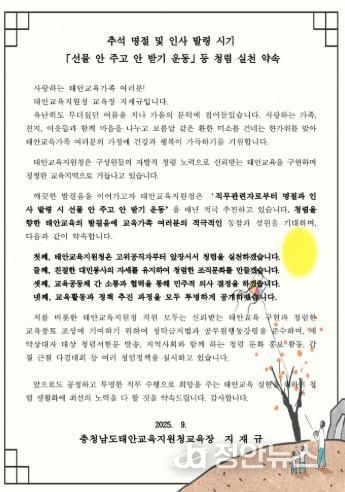 추석 명절 및 인사 발령 시기
「선물 안 주고 안 받기 운동」 등 청렴 실천 약속
사랑하는 태안교육가족 여러분!
태안교육지원청 교육장 지재규입니다.
유난히도 무더웠던 여름을 지나 가을의 문턱에 접어들었습니다. 사랑하는 가족,
친지, 이웃들과 함께 마음을 나누고 보름달 같은 환한 미소를 건네는 한가위를 맞아
태안교육가족 여러분의 가정에 건강과 행복이 가득하기를 기원합니다.
태안교육지원청은 구성원들의 자발적 청렴 노력으로 신뢰받는 태안교육을 구현하며
청정한 교육지역으로 거듭나고 있습니다.
깨끗한 발걸음을 이어가고자 태안교육지원청은 '직무관련자로부터 명절과 인
사 발령 시 선물 안 주고 안 받기 운동'을 매년 적극 추진하고 있습니다. 청렴을
향한 태안교육의 발걸음에 교육가족 여러분의 적극적인 동참과 성원을 기대하며,
다음과 같이 약속합니다.
첫째, 태안교육지원청은 고위공직자부터 앞장서서 청렴을 실천하겠습니다.
둘째, 친절한 대민봉사의 자세를 유지하여 청렴한 조직문화를 만들겠습니다.
셋째, 교육공동체 간 소통과 협력을 통해 민주적 의사 결정을 하겠습니다.
넷째, 교육활동과 정책 추진 과정을 모두 투명하게 공개하겠습니다.
저를 비롯한 태안교육지원청 직원 모두는 신뢰받는 태안교육 구현과 청렴한
교육풍토 조성에 기여하기 위하여 청탁금지법과 공무원행동강령을 준수하며, 계
약상대자 대상 청렴서한문 발송, 지역사회와 함께 하는 청렴 문화 홍보 활동, 갑
질 근절 다짐대회 등 여러 청렴정책을 실시하고 있습니다.
앞으로도 공정하고 투명한 직무 수행으로 희망을 주는 태안교육 실현을 위하여 청
렴 생활화에 최선의 노력을 다 할 것을 약속드립니다. 감사합니다.
2025. 9.
충청남도태안교육지원청교육장 지 재 규
정안뉴스